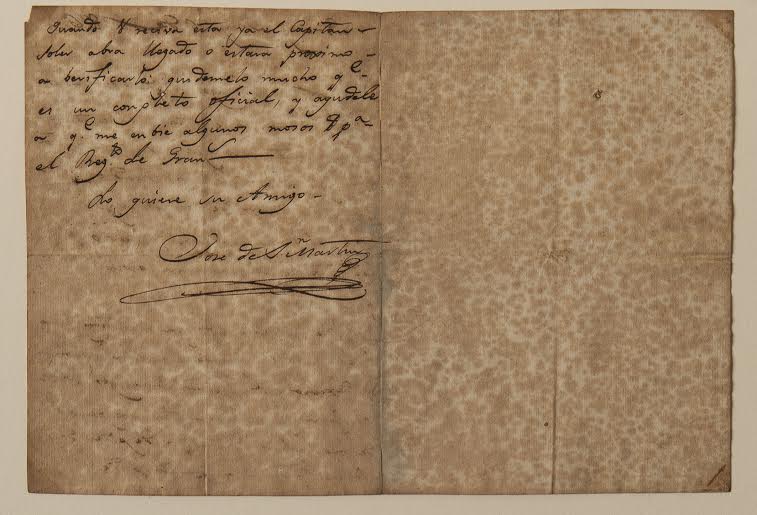 Quando V reciva esta ya el Capitan
Soler abra llegado o estara proximo
a berificarlo: quidemelo mucho q.e
es un conpleto oficial, y ayudele
a q.e me enbie algunos mosos p.a
el Reg.to de Gran.s
Lo quiere su Amigo
José de S.n Martin